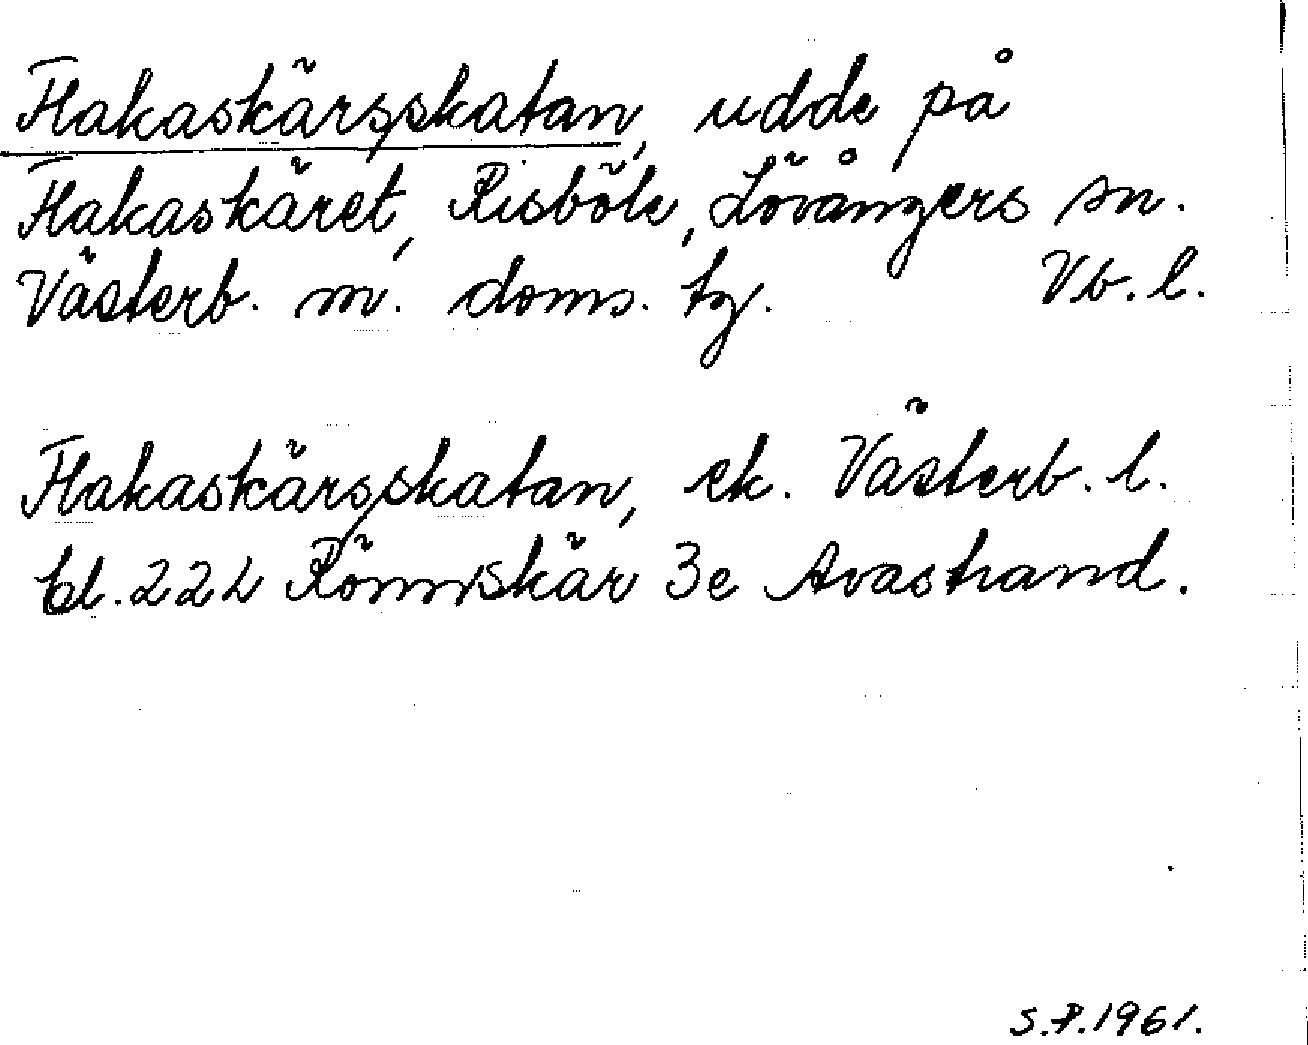 Hakaskärsskatan, udde på
Hakaskäret, Risböle, Lövångers sn.
Västerb. m. doms. tg. Vb. l.
Hakaskärsskatan, ek. Västerb. l.
bl. 22L Rönnskär 3e Avastrand.
S.P. 1961.